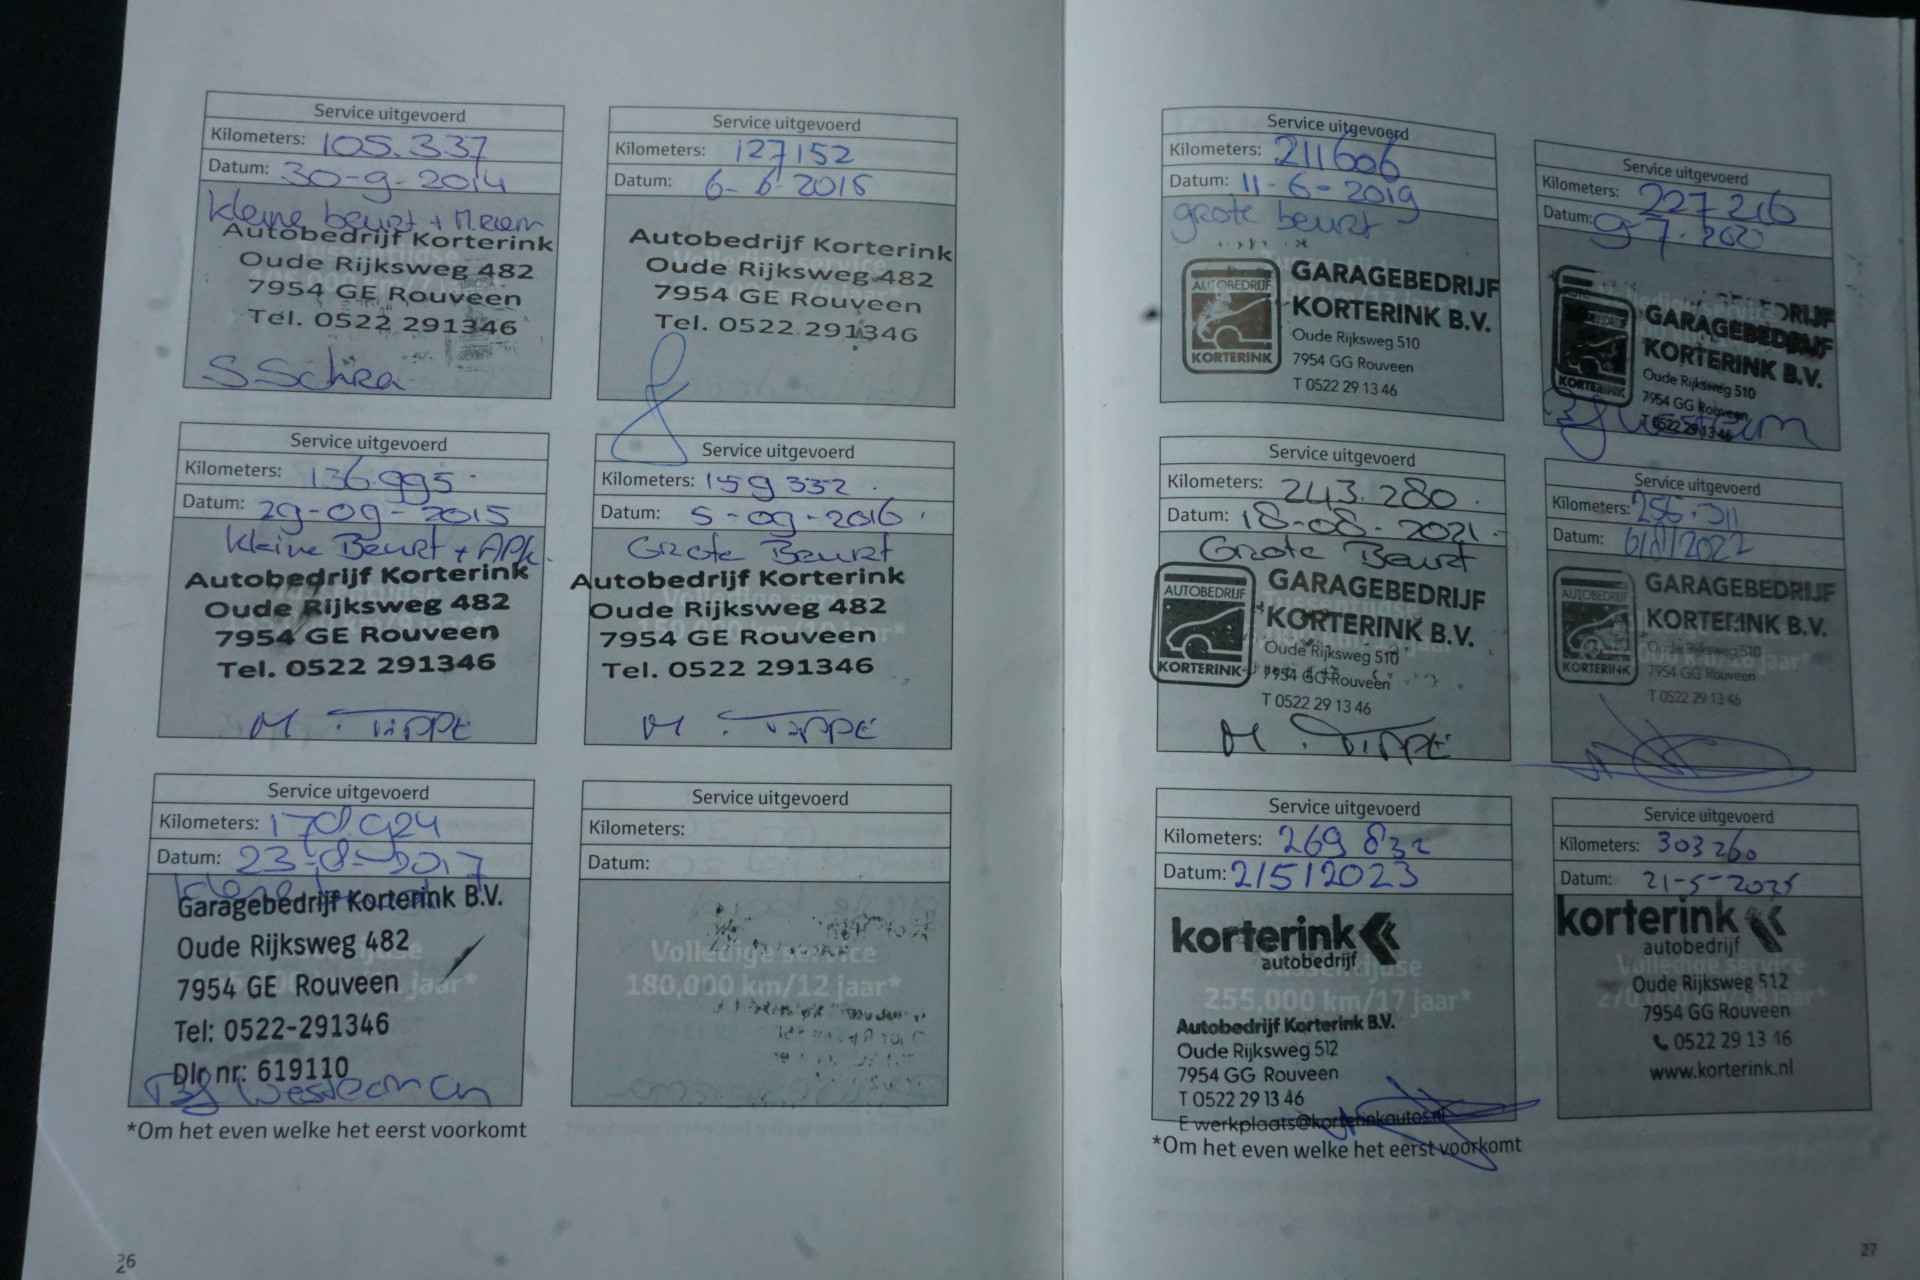 Service uitgevoerd
Kilometers: 105.337
Datum: 30-9-2014
kleine beurt + M.riem
Autobedrijf Korterink
Oude Rijksweg 482
7954 GE Rouveen
Tel. 0522 291346
Service uitgevoerd
Kilometers: 127152
Datum: 6-6-2015
Autobedrijf Korterink
Oude Rijksweg 482
7954 GE Rouveen
Tel. 0522 291346
Service uitgevoerd
Kilometers: 136.995
Datum: 29-09-2015
Kleine Beurt + APK.
Autobedrijf Korterink
Oude Rijksweg 482
7954 GE Rouveen
Tel. 0522 291346
M. TIPPE
Service uitgevoerd
Kilometers: 159 332.
Datum: 5-09-2016.
Grote Beurt
Autobedrijf Korterink
Oude Rijksweg 482
7954 GE Rouveen
Tel. 0522 291346
M. TIPPE
Service uitgevoerd
Kilometers: 170.924
Datum: 23-8-2017
Garagebedrijf Korterink B.V.
Oude Rijksweg 482
7954 GE Rouveen
Tel: 0522-291346
Dlr nr: 619110
Service uitgevoerd
Kilometers:
Datum:
Volledige service
180,000 km/12 jaar*
*Om het even welke het eerst voorkomt
26
Service uitgevoerd
Kilometers: 211606
Datum: 11-6-2019
grote beurt
AUTOBEDRIJF
KORTERINK
GARAGEBEDRIJF
KORTERINK B.V.
Oude Rijksweg 510
7954 GG Rouveen
T 0522 29 13 46
Service uitgevoerd
Kilometers: 227216
Datum: 9-7-2020
KORTERINK
GARAGEBEDRIJF
KORTERINK B.V.
Oude Rijksweg 510
7954 GG Rouveen
T 0522 29 13 46
Service uitgevoerd
Kilometers: 243.280.
Datum: 18-08-2021.
Grote Beurt
AUTOBEDRIJF
KORTERINK
GARAGEBEDRIJF
KORTERINK B.V.
Oude Rijksweg 510
7954 GG Rouveen
T 0522 29 13 46
M. TIPPE
Service uitgevoerd
Kilometers: 256.311
Datum:
AUTOBEDRIJF
KORTERINK
GARAGEBEDRIJF
KORTERINK B.V.
Oude Rijksweg 510
7954 GG Rouveen
T 0522 29 13 46
Service uitgevoerd
Kilometers: 269 832
Datum: 2/5/2023
korterink
autobedrijf
Tussentijdse
255,000 km/17 jaar*
Autobedrijf Korterink B.V.
Oude Rijksweg 512
7954 GG Rouveen
T 0522 29 13 46
E werkplaats@korterinkautos.nl
Service uitgevoerd
Kilometers: 303260
Datum: 21-5-2025
korterink
autobedrijf
Volledige service
Oude Rijksweg 512
7954 GG Rouveen
0522 29 13 46
www.korterink.nl
*Om het even welke het eerst voorkomt
27